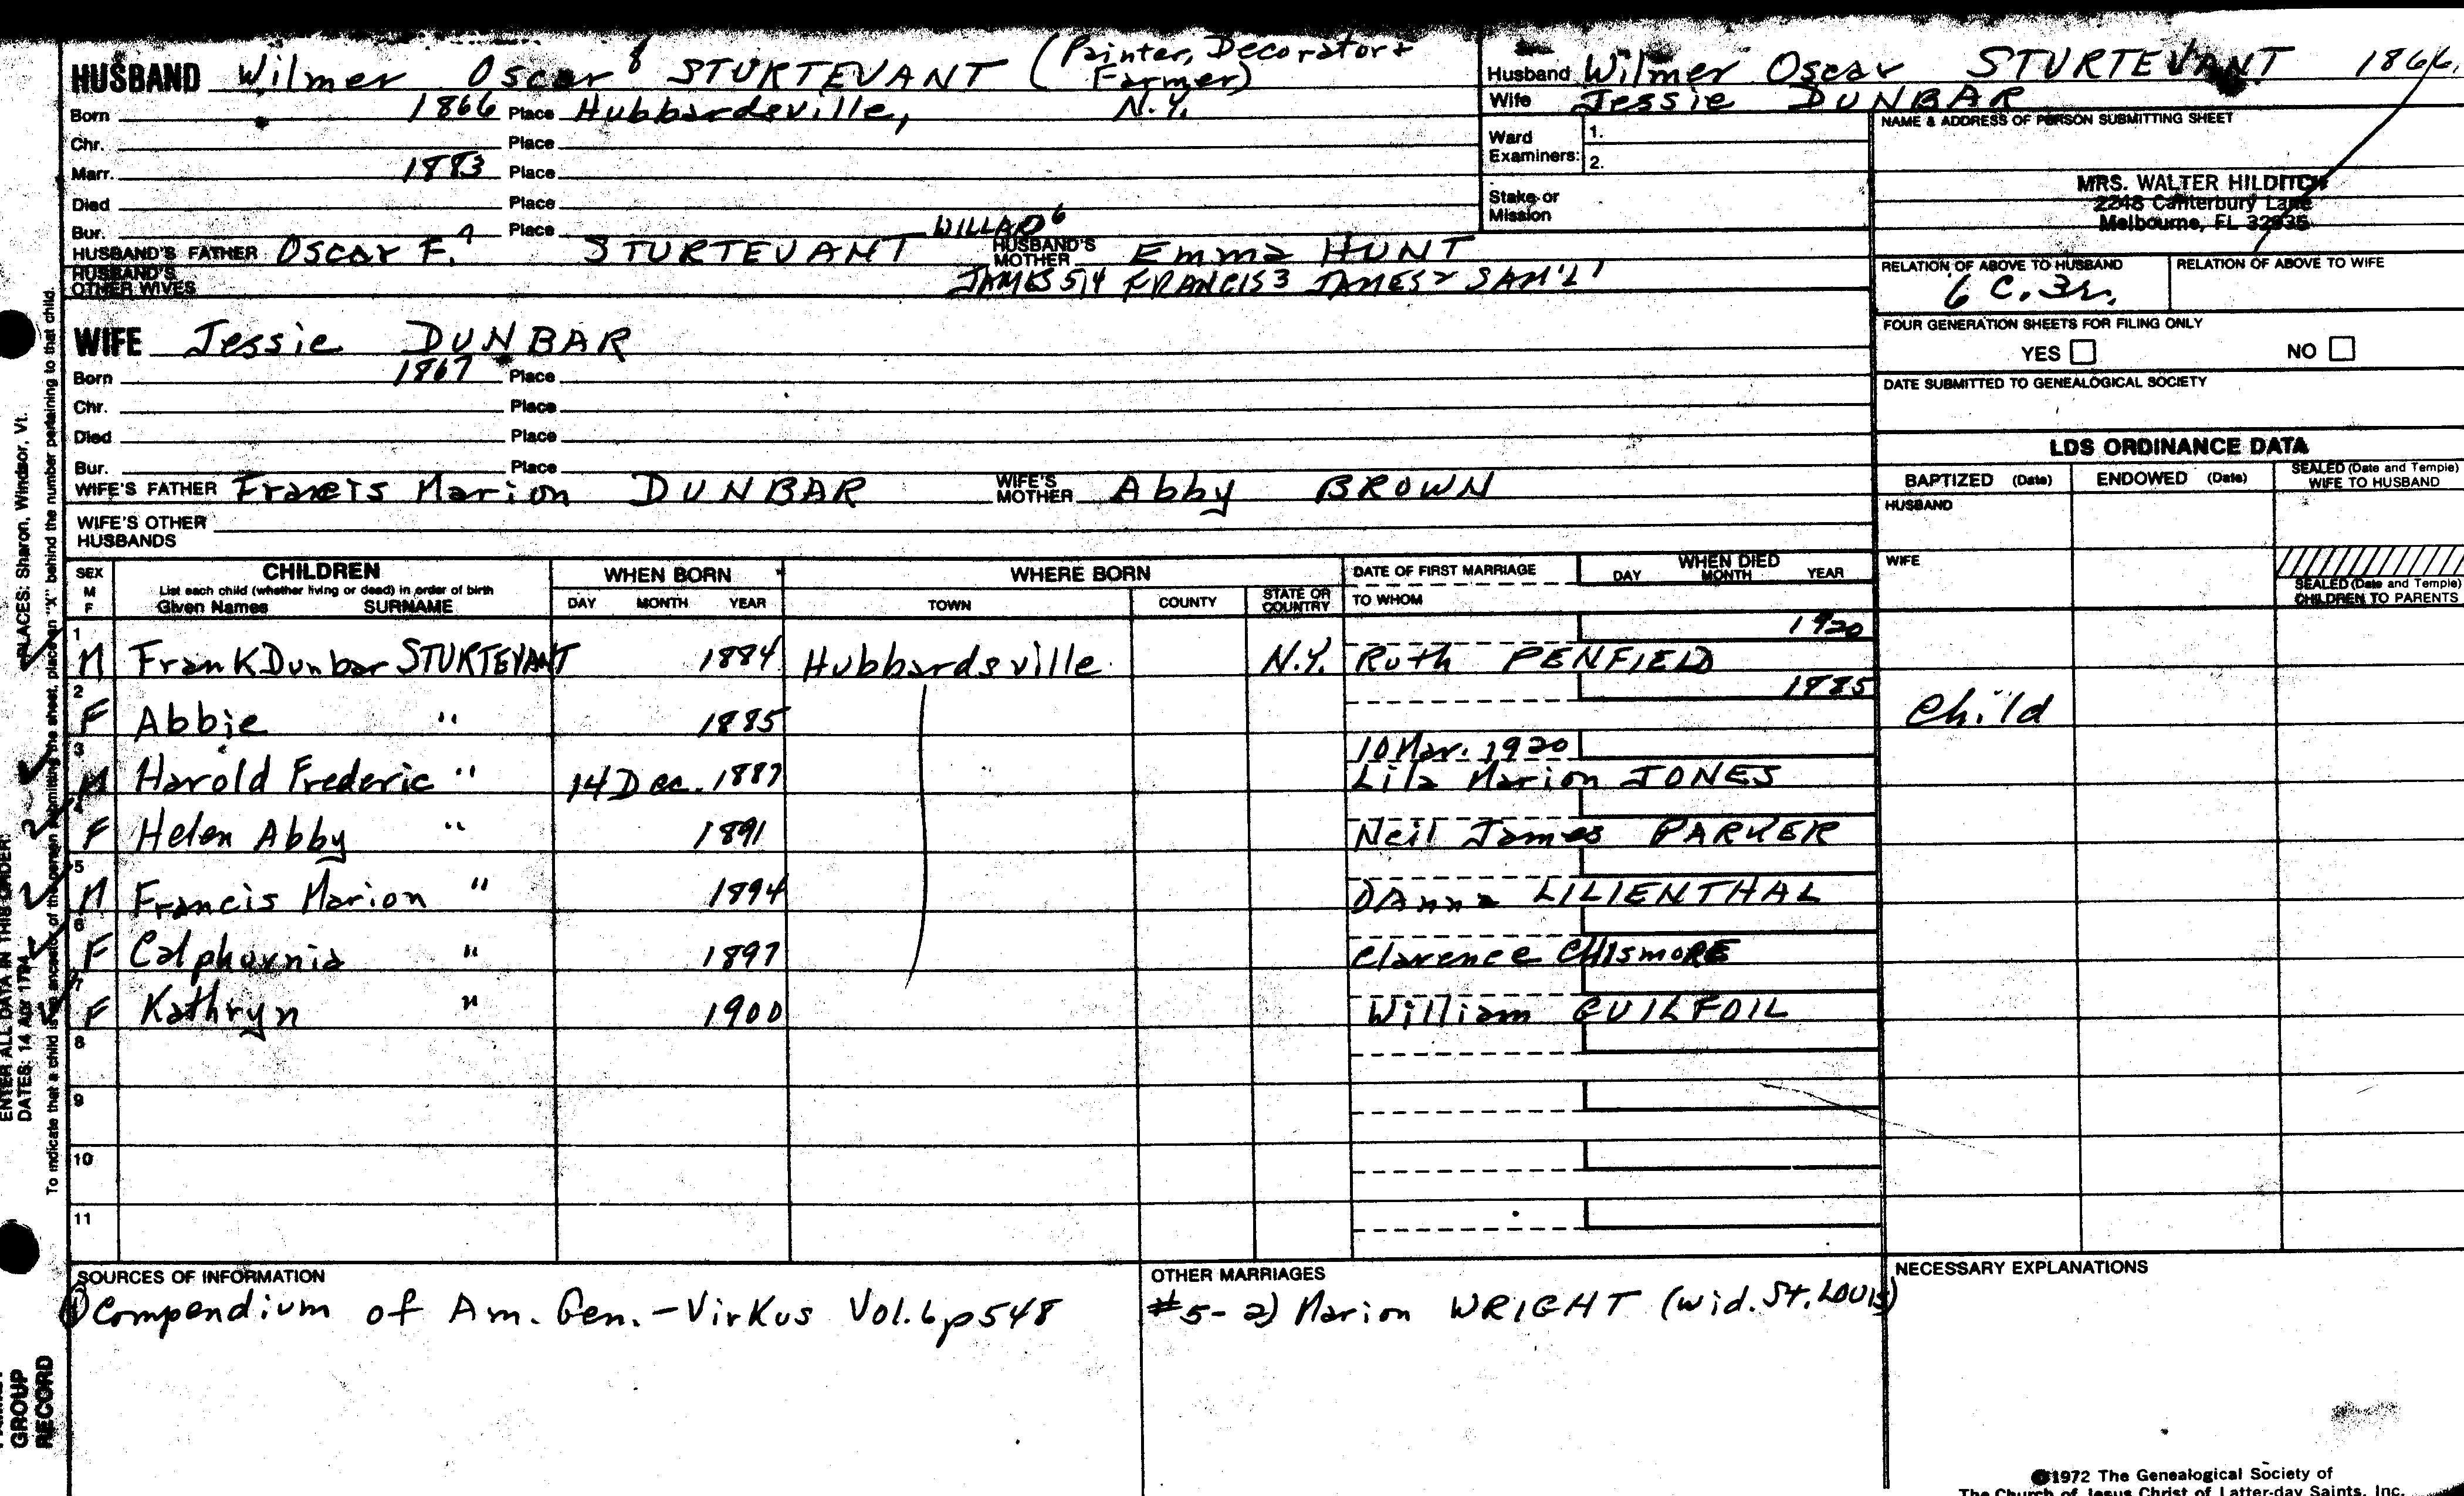 HUSBAND Wilmer Oscar 8 STURTEVANT (Painter, Decorator + Farmer)
Born 1866 Place Hubbardsville, N.Y.
Chr. Place
Marr. 1883 Place
Died Place
Bur. Place
HUSBAND'S FATHER Oscar F. 7 STURTEVANT WILLARD 6 HUSBAND'S MOTHER Emma HUNT
HUSBAND'S OTHER WIVES JAMES 5,4 FRANCIS 3 JAMES 2 SAM'L 1
WIFE Jessie DUNBAR
Born 1867 Place
Chr. Place
Died Place
Bur. Place
WIFE'S FATHER Francis Marion DUNBAR WIFE'S MOTHER Abby BROWN
WIFE'S OTHER HUSBANDS
Husband Wilmer Oscar STURTEVANT 1866
Wife Jessie DUNBAR
Ward Examiners: 1.
2.
Stake or Mission
NAME & ADDRESS OF PERSON SUBMITTING SHEET
MRS. WALTER HILDITCH
2248 Canterbury Lane
Melbourne, FL 32935
RELATION OF ABOVE TO HUSBAND RELATION OF ABOVE TO WIFE
6 C. 3r.
FOUR GENERATION SHEETS FOR FILING ONLY
YES NO
DATE SUBMITTED TO GENEALOGICAL SOCIETY
LDS ORDINANCE DATA
BAPTIZED (Date) ENDOWED (Date) SEALED (Date and Temple) WIFE TO HUSBAND
HUSBAND
WIFE
SEALED (Date and Temple) CHILDREN TO PARENTS
SEX M F CHILDREN WHEN BORN WHERE BORN DATE OF FIRST MARRIAGE WHEN DIED
List each child (whether living or dead) in order of birth
Given Names SURNAME DAY MONTH YEAR TOWN COUNTY STATE OR COUNTRY TO WHOM DAY MONTH YEAR
1 1920
M Frank Dunbar STURTEVANT 1884 Hubbardsville N.Y. Ruth PENFIELD
2 1885
F Abbie " 1885 Child
3 10 Mar. 1920
M Harold Frederic " 14 Dec. 1887 Lila Marion JONES
4
F Helen Abby " 1891 Neil James PARKER
5
M Francis Marion " 1894 LILIENTHAL
6
F Calphurnia " 1897 Clarence CHISMORE
7
F Kathryn " 1900 William GUILFOIL
8
9
10
11
SOURCES OF INFORMATION
① Compendium of Am. Gen. - Virkus Vol. 6 p 548
OTHER MARRIAGES
#5 - 2) Marion WRIGHT (wid. St. LOUIS)
NECESSARY EXPLANATIONS
©1972 The Genealogical Society of
The Church of Jesus Christ of Latter-day Saints, Inc.
PLACES: Sharon, Windsor, Vt.
ENTER ALL DATA IN THIS ORDER:
DATES: 14 Apr 1794
To indicate that a child is an ancestor of the person submitting the sheet, place an "X" behind the number pertaining to that child.
GROUP
RECORD